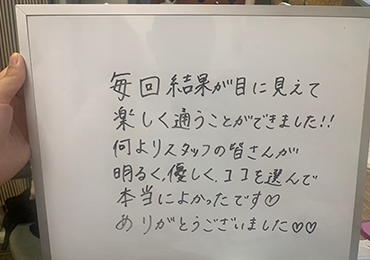 毎回結果が目に見えて
楽しく通うことができました!!
何よりスタッフの皆さんが
明るく、優しく、ココを選んで
本当によかったです♡
ありがとうございました♡♡